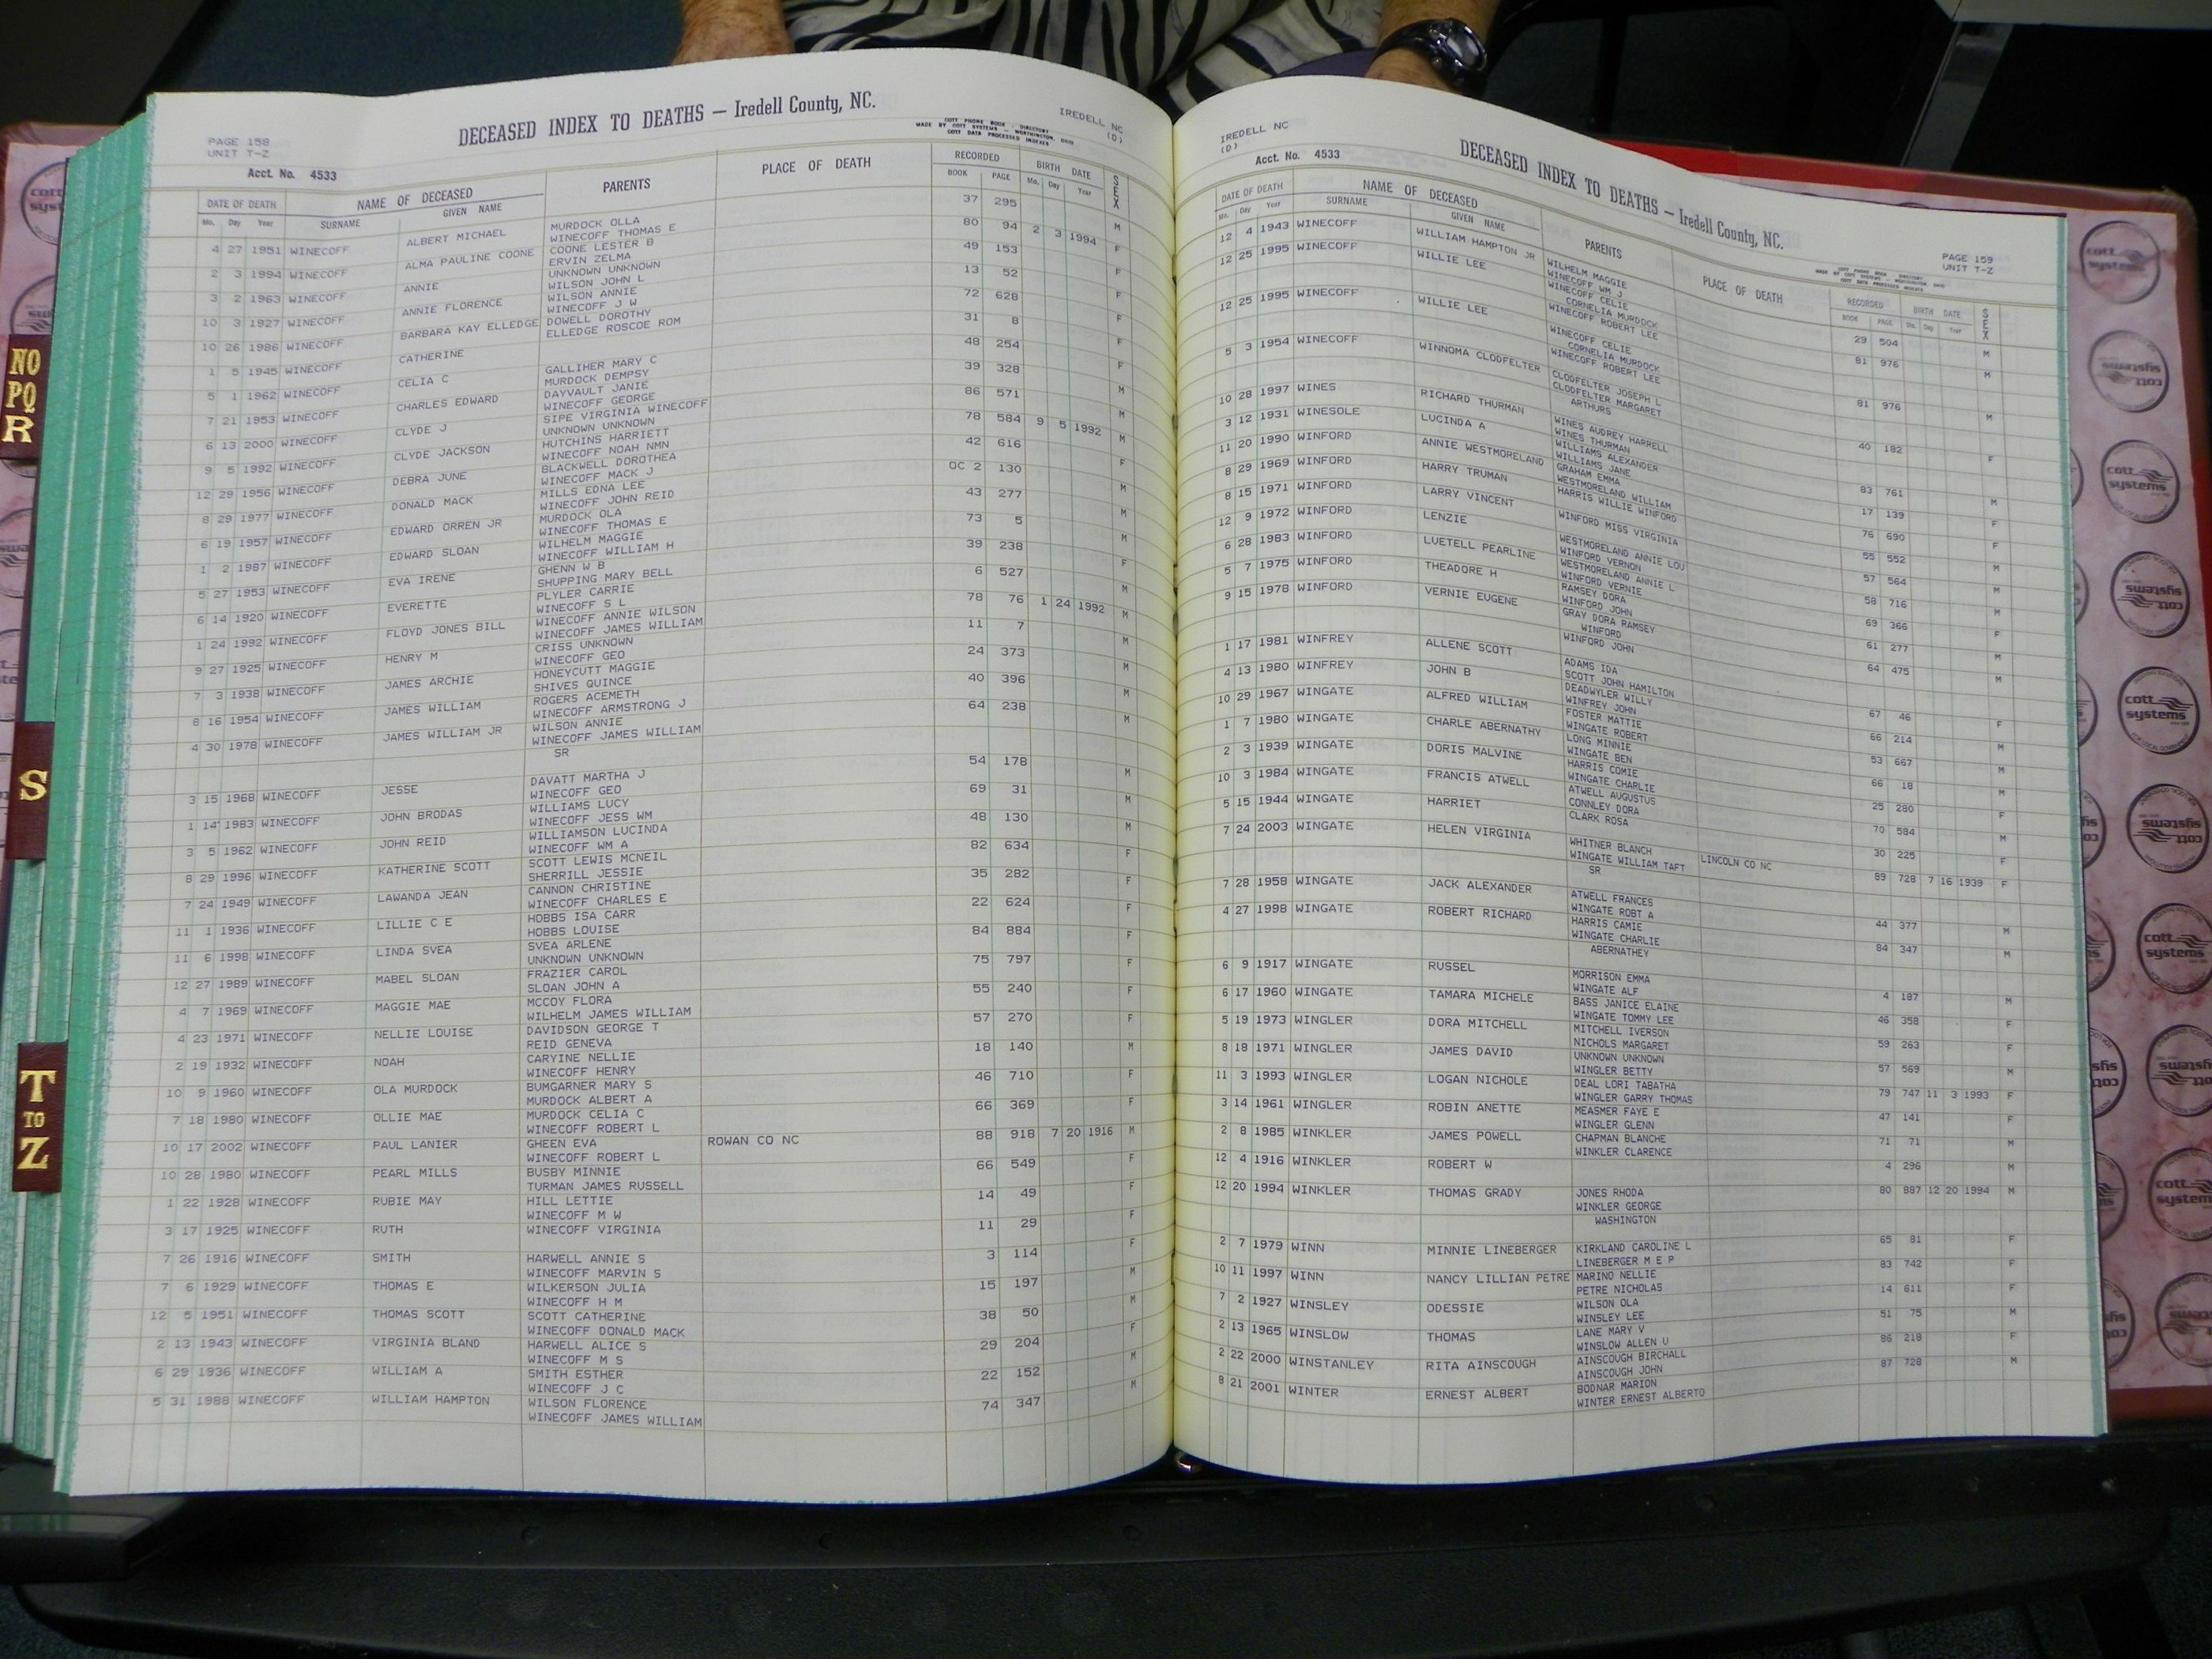 PAGE 158
UNIT T-Z
DECEASED INDEX TO DEATHS — Iredell County, NC.
COTT PHONE BOOK - DIRECTORY
MADE BY COTT SYSTEMS - WORTHINGTON, OHIO
COTT DATA PROCESSED INDEXES
IREDELL NC
(D)
Acct. No. 4533
DATE OF DEATH NAME OF DECEASED PARENTS PLACE OF DEATH RECORDED BIRTH DATE SEX
Mo. Day Year SURNAME GIVEN NAME BOOK PAGE Mo. Day Year
4 27 1951 WINECOFF ALBERT MICHAEL MURDOCK OLLA 37 295 M
WINECOFF THOMAS E
2 3 1994 WINECOFF ALMA PAULINE COONE COONE LESTER B 80 94 2 3 1994 F
ERVIN ZELMA
3 2 1963 WINECOFF ANNIE UNKNOWN UNKNOWN 49 153 F
WILSON JOHN L
10 3 1927 WINECOFF ANNIE FLORENCE WILSON ANNIE 13 52 F
WINECOFF J W
10 26 1986 WINECOFF BARBARA KAY ELLEDGE DOWELL DOROTHY 72 628 F
ELLEDGE ROSCOE ROM
1 5 1945 WINECOFF CATHERINE 31 8 F
5 1 1962 WINECOFF CELIA C GALLIHER MARY C 48 254 F
MURDOCK DEMPSY
7 21 1953 WINECOFF CHARLES EDWARD DAYVAULT JANIE 39 328 M
WINECOFF GEORGE
6 13 2000 WINECOFF CLYDE J SIPE VIRGINIA WINECOFF 86 571 M
UNKNOWN UNKNOWN
9 5 1992 WINECOFF CLYDE JACKSON HUTCHINS HARRIETT 78 584 9 5 1992 M
WINECOFF NOAH NMN
12 29 1956 WINECOFF DEBRA JUNE BLACKWELL DOROTHEA 42 616 F
WINECOFF MACK J
8 29 1977 WINECOFF DONALD MACK MILLS EDNA LEE OC 2 130 M
WINECOFF JOHN REID
6 19 1957 WINECOFF EDWARD ORREN JR MURDOCK OLA 43 277 M
WINECOFF THOMAS E
1 2 1987 WINECOFF EDWARD SLOAN WILHELM MAGGIE 73 5 M
WINECOFF WILLIAM H
5 27 1953 WINECOFF EVA IRENE GHENN W B 39 238 F
SHUPPING MARY BELL
6 14 1920 WINECOFF EVERETTE PLYLER CARRIE 6 527 M
WINECOFF S L
1 24 1992 WINECOFF FLOYD JONES BILL WINECOFF ANNIE WILSON 78 76 1 24 1992 M
WINECOFF JAMES WILLIAM
9 27 1925 WINECOFF HENRY M CRISS UNKNOWN 11 7 M
WINECOFF GEO
7 3 1938 WINECOFF JAMES ARCHIE HONEYCUTT MAGGIE 24 373 M
SHIVES QUINCE
8 16 1954 WINECOFF JAMES WILLIAM ROGERS ACEMETH 40 396 M
WINECOFF ARMSTRONG J
4 30 1978 WINECOFF JAMES WILLIAM JR WILSON ANNIE 64 238 M
WINECOFF JAMES WILLIAM
SR
3 15 1968 WINECOFF JESSE DAVATT MARTHA J 54 178 M
WINECOFF GEO
1 14 1983 WINECOFF JOHN BRODAS WILLIAMS LUCY 69 31 M
WINECOFF JESS WM
3 5 1962 WINECOFF JOHN REID WILLIAMSON LUCINDA 48 130 M
WINECOFF WM A
8 29 1996 WINECOFF KATHERINE SCOTT SCOTT LEWIS MCNEIL 82 634 F
SHERRILL JESSIE
7 24 1949 WINECOFF LAWANDA JEAN CANNON CHRISTINE 35 282 F
WINECOFF CHARLES E
11 1 1936 WINECOFF LILLIE C E HOBBS ISA CARR 22 624 F
HOBBS LOUISE
11 6 1998 WINECOFF LINDA SVEA SVEA ARLENE 84 884 F
UNKNOWN UNKNOWN
12 27 1989 WINECOFF MABEL SLOAN FRAZIER CAROL 75 797 F
SLOAN JOHN A
4 7 1969 WINECOFF MAGGIE MAE MCCOY FLORA 55 240 F
WILHELM JAMES WILLIAM
4 23 1971 WINECOFF NELLIE LOUISE DAVIDSON GEORGE T 57 270 F
REID GENEVA
2 19 1932 WINECOFF NOAH CARYINE NELLIE 18 140 M
WINECOFF HENRY
10 9 1960 WINECOFF OLA MURDOCK BUMGARNER MARY S 46 710 F
MURDOCK ALBERT A
7 18 1980 WINECOFF OLLIE MAE MURDOCK CELIA C 66 369 F
WINECOFF ROBERT L
10 17 2002 WINECOFF PAUL LANIER GHEEN EVA ROWAN CO NC 88 918 7 20 1916 M
WINECOFF ROBERT L
10 28 1980 WINECOFF PEARL MILLS BUSBY MINNIE 66 549 F
TURMAN JAMES RUSSELL
1 22 1928 WINECOFF RUBIE MAY HILL LETTIE 14 49 F
WINECOFF M W
3 17 1925 WINECOFF RUTH WINECOFF VIRGINIA 11 29 F
7 26 1916 WINECOFF SMITH HARWELL ANNIE S 3 114 F
WINECOFF MARVIN S
7 6 1929 WINECOFF THOMAS E WILKERSON JULIA 15 197 M
WINECOFF H M
12 5 1951 WINECOFF THOMAS SCOTT SCOTT CATHERINE 38 50 M
WINECOFF DONALD MACK
2 13 1943 WINECOFF VIRGINIA BLAND HARWELL ALICE S 29 204 F
WINECOFF M S
6 29 1936 WINECOFF WILLIAM A SMITH ESTHER 22 152 M
WINECOFF J C
5 31 1988 WINECOFF WILLIAM HAMPTON WILSON FLORENCE 74 347 M
WINECOFF JAMES WILLIAM
IREDELL NC
(D)
Acct. No. 4533
DECEASED INDEX TO DEATHS — Iredell County, NC.
PAGE 159
UNIT T-Z
DATE OF DEATH NAME OF DECEASED PARENTS PLACE OF DEATH RECORDED BIRTH DATE SEX
Mo. Day Year SURNAME GIVEN NAME BOOK PAGE Mo. Day Year
12 4 1943 WINECOFF WILLIAM HAMPTON JR WILHELM MAGGIE 29 504 M
WINECOFF WM J
12 25 1995 WINECOFF WILLIE LEE WINECOFF CELIE 81 976 M
CORNELIA MURDOCK
WINECOFF ROBERT LEE
12 25 1995 WINECOFF WILLIE LEE WINECOFF CELIE 81 976 M
CORNELIA MURDOCK
WINECOFF ROBERT LEE
5 3 1954 WINECOFF WINNOMA CLODFELTER CLODFELTER JOSEPH L 40 182 F
CLODFELTER MARGARET
ARTHURS
10 28 1997 WINES RICHARD THURMAN WINES AUDREY HARRELL 83 761 M
WINES THURMAN
3 12 1931 WINESOLE LUCINDA A WILLIAMS ALEXANDER 17 139 F
WILLIAMS JANE
11 20 1990 WINFORD ANNIE WESTMORELAND GRAHAM EMMA 76 690 F
WESTMORELAND WILLIAM
8 29 1969 WINFORD HARRY TRUMAN HARRIS WILLIE WINFORD 55 552 M
8 15 1971 WINFORD LARRY VINCENT WINFORD MISS VIRGINIA 57 564 M
12 9 1972 WINFORD LENZIE WESTMORELAND ANNIE LOU 58 716 M
WINFORD VERNON
6 28 1983 WINFORD LUETELL PEARLINE WESTMORELAND ANNIE L 69 366 F
WINFORD VERNIE
5 7 1975 WINFORD THEADORE H RAMSEY DORA 61 277 M
WINFORD JOHN
9 15 1978 WINFORD VERNIE EUGENE GRAY DORA RAMSEY 64 475 M
WINFORD
WINFORD JOHN
1 17 1981 WINFREY ALLENE SCOTT ADAMS IDA 67 46 F
SCOTT JOHN HAMILTON
4 13 1980 WINFREY JOHN B DEADWYLER WILLY 66 214 M
WINFREY JOHN
10 29 1967 WINGATE ALFRED WILLIAM FOSTER MATTIE 53 667 M
WINGATE ROBERT
1 7 1980 WINGATE CHARLE ABERNATHY LONG MINNIE 66 18 M
WINGATE BEN
2 3 1939 WINGATE DORIS MALVINE HARRIS COMIE 25 280 F
WINGATE CHARLIE
10 3 1984 WINGATE FRANCIS ATWELL ATWELL AUGUSTUS 70 584 M
CONNLEY DORA
5 15 1944 WINGATE HARRIET CLARK ROSA 30 225 F
7 24 2003 WINGATE HELEN VIRGINIA WHITNER BLANCH LINCOLN CO NC 89 728 7 16 1939 F
WINGATE WILLIAM TAFT
SR
7 28 1958 WINGATE JACK ALEXANDER ATWELL FRANCES 44 377 M
WINGATE ROBT A
4 27 1998 WINGATE ROBERT RICHARD HARRIS CAMIE 84 347 M
WINGATE CHARLIE
ABERNATHEY
6 9 1917 WINGATE RUSSEL MORRISON EMMA 4 187 M
WINGATE ALF
6 17 1960 WINGATE TAMARA MICHELE BASS JANICE ELAINE 46 358 F
WINGATE TOMMY LEE
5 19 1973 WINGLER DORA MITCHELL MITCHELL IVERSON 59 263 F
NICHOLS MARGARET
8 18 1971 WINGLER JAMES DAVID UNKNOWN UNKNOWN 57 569 M
WINGLER BETTY
11 3 1993 WINGLER LOGAN NICHOLE DEAL LORI TABATHA 79 747 11 3 1993 F
WINGLER GARRY THOMAS
3 14 1961 WINGLER ROBIN ANETTE MEASMER FAYE E 47 141 F
WINGLER GLENN
2 8 1985 WINKLER JAMES POWELL CHAPMAN BLANCHE 71 71 M
WINKLER CLARENCE
12 4 1916 WINKLER ROBERT W 4 296 M
12 20 1994 WINKLER THOMAS GRADY JONES RHODA 80 887 12 20 1994 M
WINKLER GEORGE
WASHINGTON
2 7 1979 WINN MINNIE LINEBERGER KIRKLAND CAROLINE L 65 81 F
LINEBERGER M E P
10 11 1997 WINN NANCY LILLIAN PETRE MARINO NELLIE 83 742 F
PETRE NICHOLAS
7 2 1927 WINSLEY ODESSIE WILSON OLA 14 611 F
WINSLEY LEE
2 13 1965 WINSLOW THOMAS LANE MARY V 51 75 M
WINSLOW ALLEN U
2 22 2000 WINSTANLEY RITA AINSCOUGH AINSCOUGH BIRCHALL 86 218 F
AINSCOUGH JOHN
8 21 2001 WINTER ERNEST ALBERT BODNAR MARION 87 728 M
WINTER ERNEST ALBERTO
NO
PQ
R
S
T
TO
Z
cott
systems